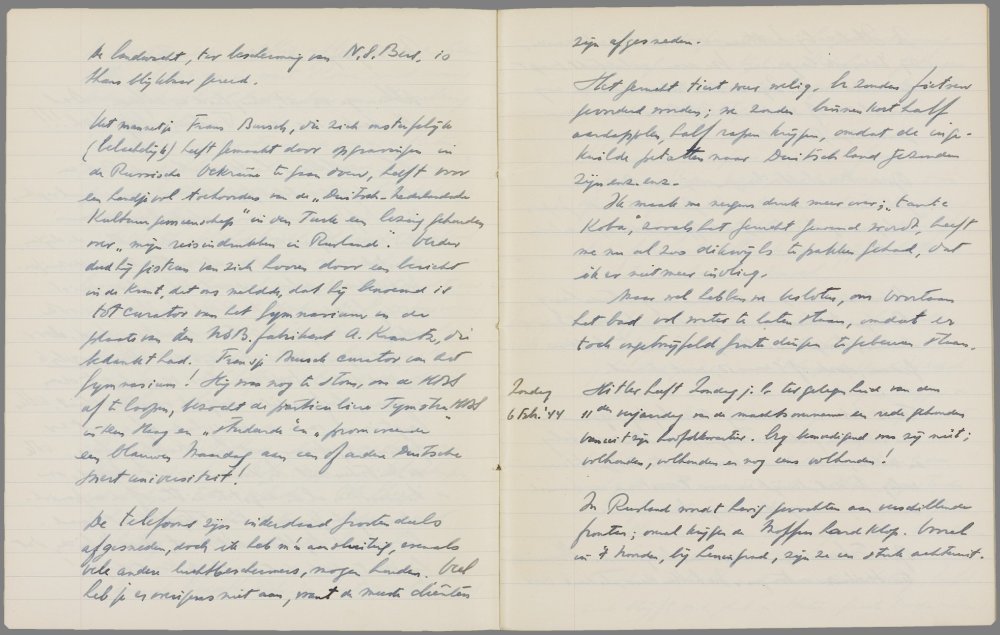 De landwacht, ter bescherming van N.S.Bers. is
thans blijkbaar gereed.
Het mannetje Frans Bursch, die zich onsterfelijk
(belachelijk) heeft gemaakt door opgravingen in
de Russische Oekraïne te gaan doen, heeft voor
een handjevol toehoorders van de „Duitsch-Nederlandsche
Kultuurgemeenschap" in den Tack een lezing gehouden
over „mijn reisindrukken in Rusland". Verder
deed hij gisteren van zich hooren door een bericht
in de krant, dat ons meldde, dat hij benoemd is
tot curator van het Gymnasium in de
plaats van den NSB. fabrikant A. Krantz, die
bedankt had. Fransje Bursch curator van het
Gymnasium! Hij was nog te stom, om de HBS
af te loopen, bezocht de particuliere HBS
in den Haag en „studeerde" en „promoveerde
een blauwen Maandag aan een of andere Duitsche
universiteit!
De telefoons zijn inderdaad grootendeels
afgesneden, doch ik heb m'n aansluiting, evenals
vele andere luchtbeschermers, mogen houden. Veel
heb je er overigens niet aan, want de meeste cliënten
zijn afgesneden.
Het gerucht tiert weer welig. Er zouden fietsen
gevorderd worden; we zouden binnenkort half
aardappelen, half rapen krijgen, omdat de inge-
kuilde patatten naar Duitschland gezonden
zijn enz. enz.
Ik maak me nergens druk meer over; „tante
Koba", zooals het gerucht genoemd wordt, heeft
me nu al zoo dikwijls te pakken gehad, dat
ik er niet meer invlieg.
Maar wel hebben we besloten, ons voortaan
het bad vol water te laten staan, omdat er
toch ongetwijfeld groote dingen te gebeuren staan.
Zondag
6 Febr. '44
Hitler heeft Zondag j.l. ter gelegenheid van den
11den verjaardag van de machtsovername een rede gehouden
vanuit zijn hoofdkwartier. Erg bemoedigend was zij niet;
volhouden, volhouden en nog eens volhouden!
In Rusland wordt hevig gevochten aan verschillende
fronten; overal krijgen de Moffen hard klop. Vooral
in 't Noorden, bij Leningrad, zijn ze een stuk achteruit.